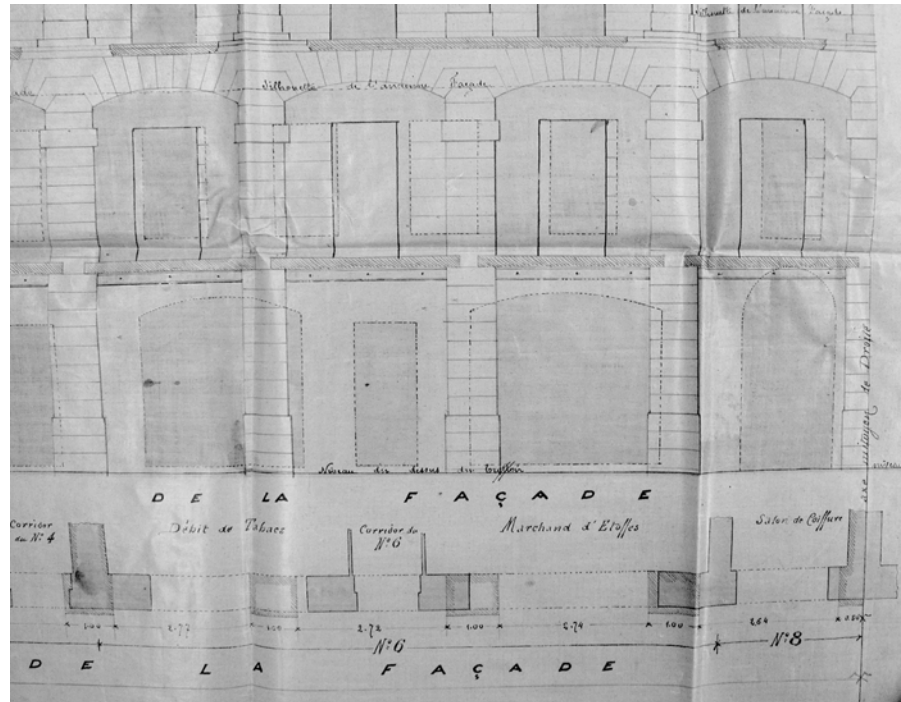 Silhouette de l'ancienne Façade
Silhouette de l'ancienne Façade
Niveau du dessus du Trottoir
axe mitoyen de Droite
DE LA FAÇADE
Corridor
du N°4
Débit de Tabacs
Corridor du
N°6
Marchand d'Etoffes
Salon de Coiffure
1.00
2.77
1.00
2.72
1.00
2.74
1.00
2.64
N°6
N°8
DE LA FAÇADE